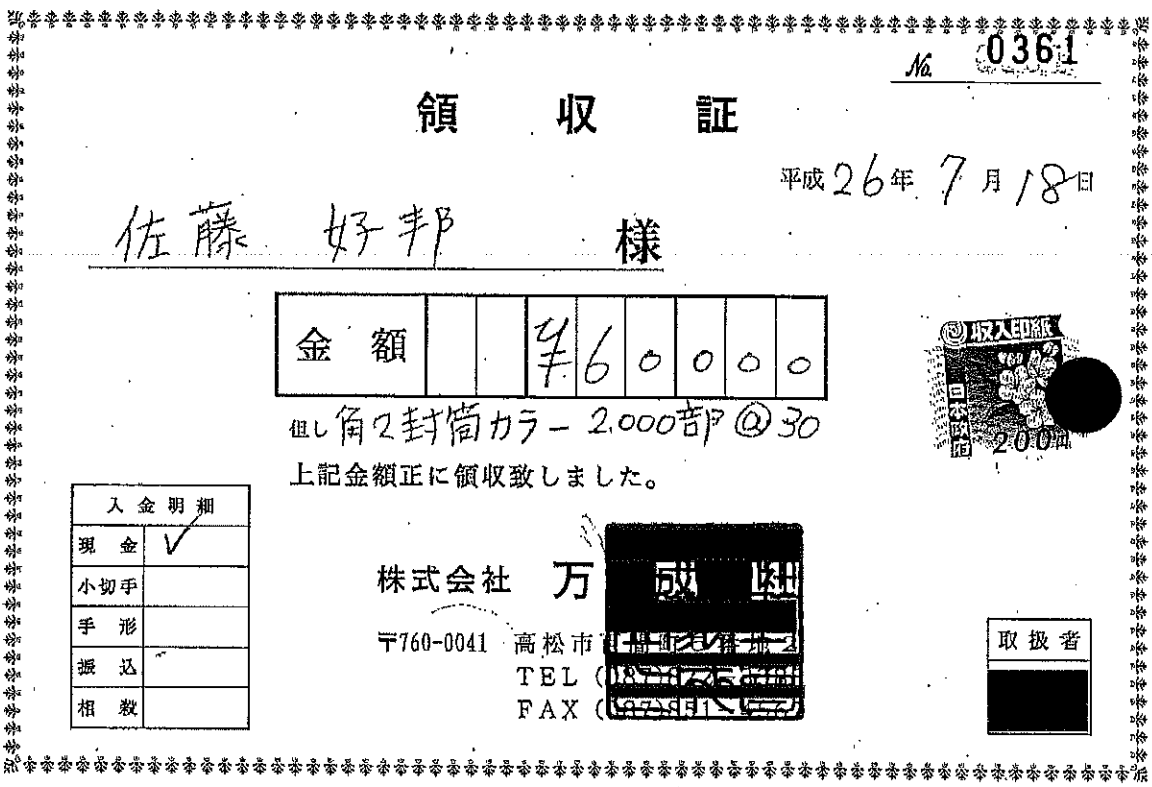 No. 0361
領収証
平成26年7月18日
佐藤 好邦 様
金額 ¥60000
但し 角2封筒カラー 2,000部 @30
上記金額正に領収致しました。
収入印紙
日本政府
200円
入金明細
現金 ✓
小切手
手形
振込
相殺
株式会社 万 成 社
〒760-0041 高松市
TEL (087)8
FAX (087)851
取扱者